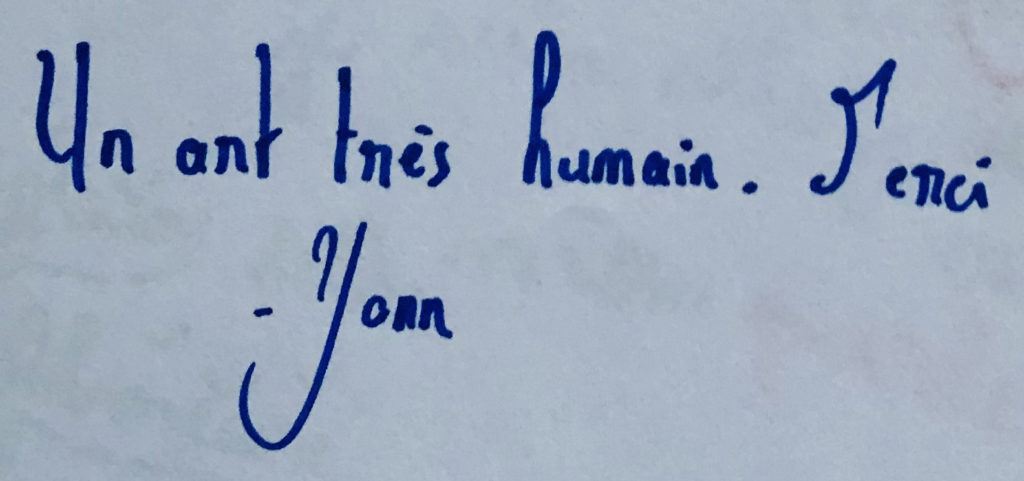 Un art très humain. Merci
- Yann